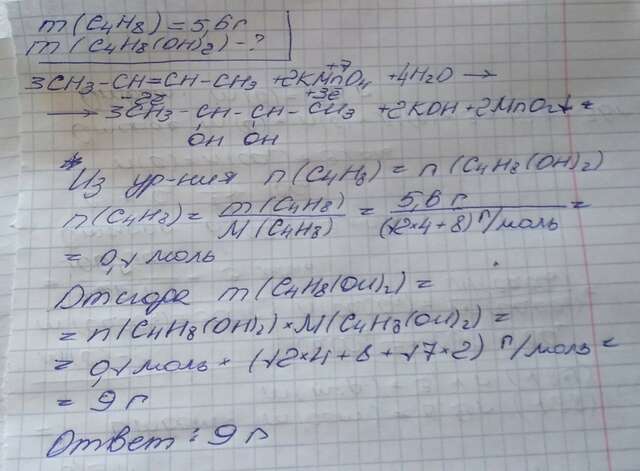 m(C₄H₈) = 5,6 г
m(C₄H₈(OH)₂) - ?
+7
3CH₃-CH=CH-CH₃ +2KMnO₄ +4H₂O →
+3ē
→ 3CH₃-CH-CH-CH₃ +2KOH+2MnO₂↓
OH OH
Из ур-ния n(C₄H₈) = n(C₄H₈(OH)₂)
n(C₄H₈) = m(C₄H₈)/M(C₄H₈) = 5,6 г/(12×4+8) г/моль =
= 0,1 моль
Отсюда m(C₄H₈(OH)₂) =
= n(C₄H₈(OH)₂)×M(C₄H₈(OH)₂) =
= 0,1 моль × (12×4+8+17×2) г/моль =
= 9 г
Ответ: 9 г